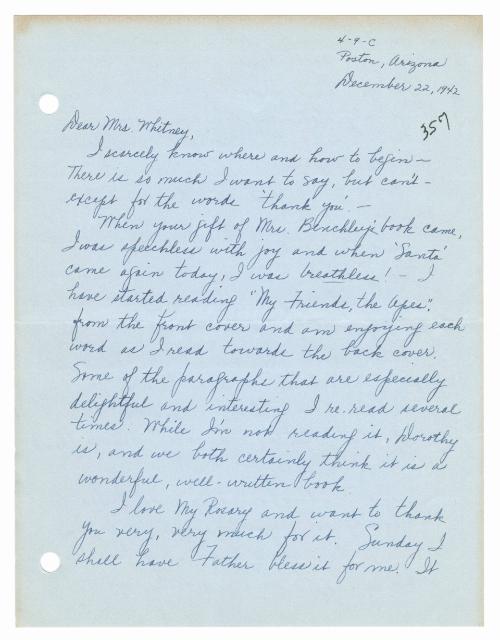 4-9-C
Poston, Arizona
December 22, 1942
357
Dear Mrs. Whitney,
I scarcely know where and how to begin —
There is so much I want to say, but can't -
except for the words 'thank you'. —
When your gift of Mrs. Benchley's book came,
I was speechless with joy and when 'Santa'
came again today, I was breathless! - I
have started reading "My Friends, the Apes".
from the front cover and am enjoying each
word as I read towards the back cover.
Some of the paragraphs that are especially
delightful and interesting I re-read several
times. While I'm not reading it, Dorothy
is, and we both certainly think it is a
wonderful, well-written book.
I love my Rosary and want to thank
you very, very much for it. Sunday I
shall have Father bless it for me. It